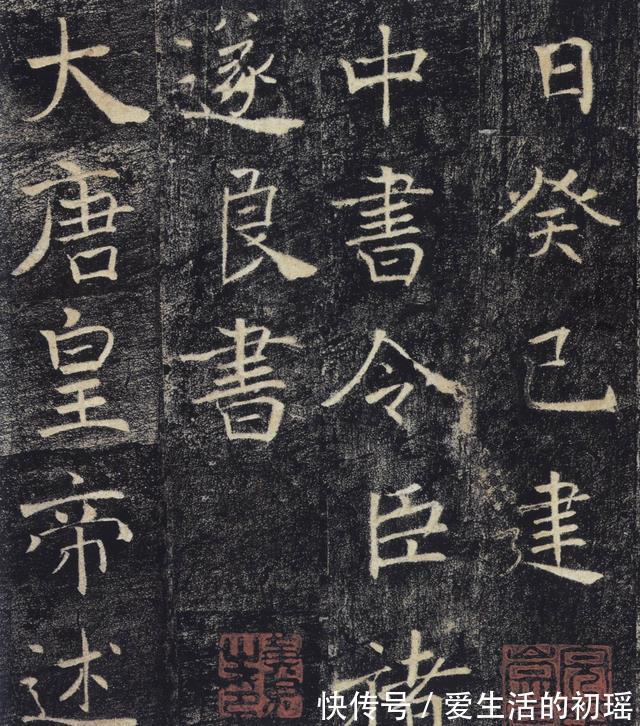 日癸巳建
中書令臣褚
遂良書
大唐皇帝述
快传号 / 爱生活的初瑶